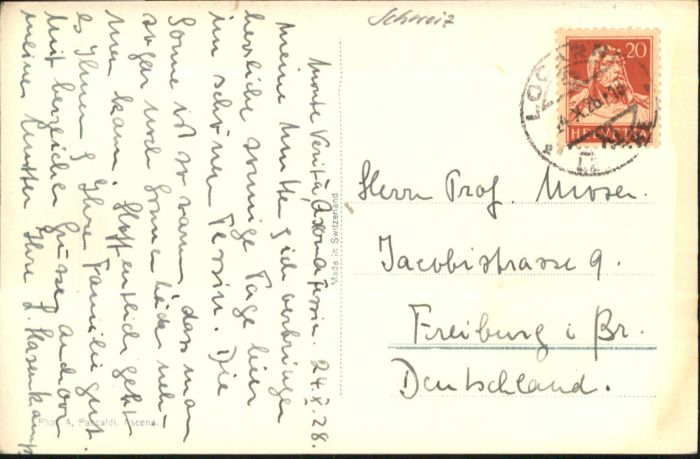 Schweiz
Monte Verità, Ascona Tessin. 24.X.28.
Meine Mutter & ich verbringen
herrliche sonnige Tage hier
im schönen Tessin. Die
Sonne ist so warm, dass man
sogar noch Sonnenbäder neh-
men kann. Hoffentlich geht
es Ihnen & Ihrer Familie gut.
Mit herzlichen Grüssen auch von
meiner Mutter Ihre L. Hasenkamp
Phot. A. Pancaldi, Ascona.
Made in Switzerland
20
HELVETIA
LOCARNO
24.X.28
Herrn Prof. Moser.
Jacobistrasse 9.
Freiburg i. Br.
Deutschland.